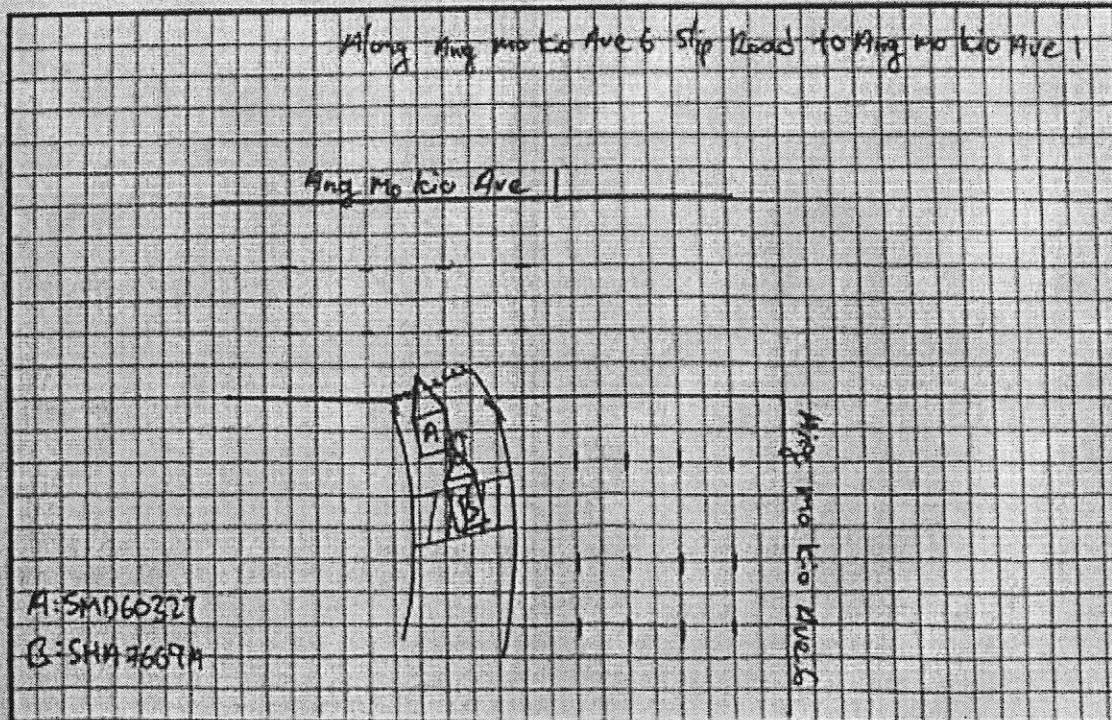 Along Ang mo kio Ave 6 Slip Road to Ang mo kio Ave 1
Ang mo kio Ave 1
A
B
Ang mo kio Ave 6
A: SMD6032T
B: SHA7669A